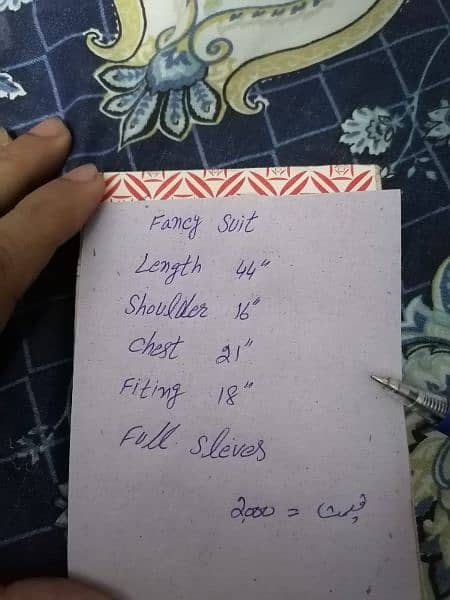 Fancy Suit
Length 44"
Shoulder 16"
Chest 21"
Fiting 18"
Full Sleves
قیمت = 2,000